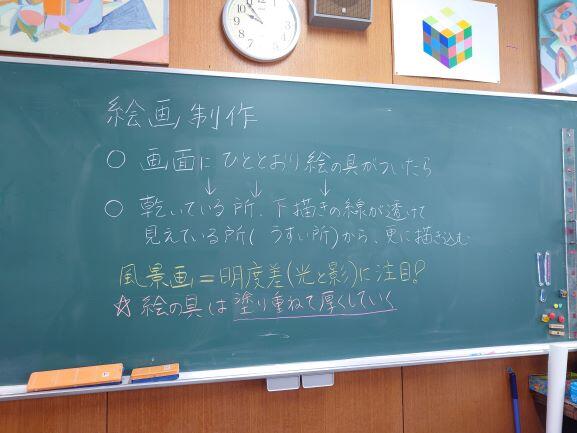 絵画制作
○ 画面にひととおり絵の具がついたら
↓ ↓ ↓
○ 乾いている所、下描きの線が透けて
見えている所(うすい所)から、更に描き込む
風景画=明度差(光と影)に注目?
☆絵の具は塗り重ねて厚くしていく